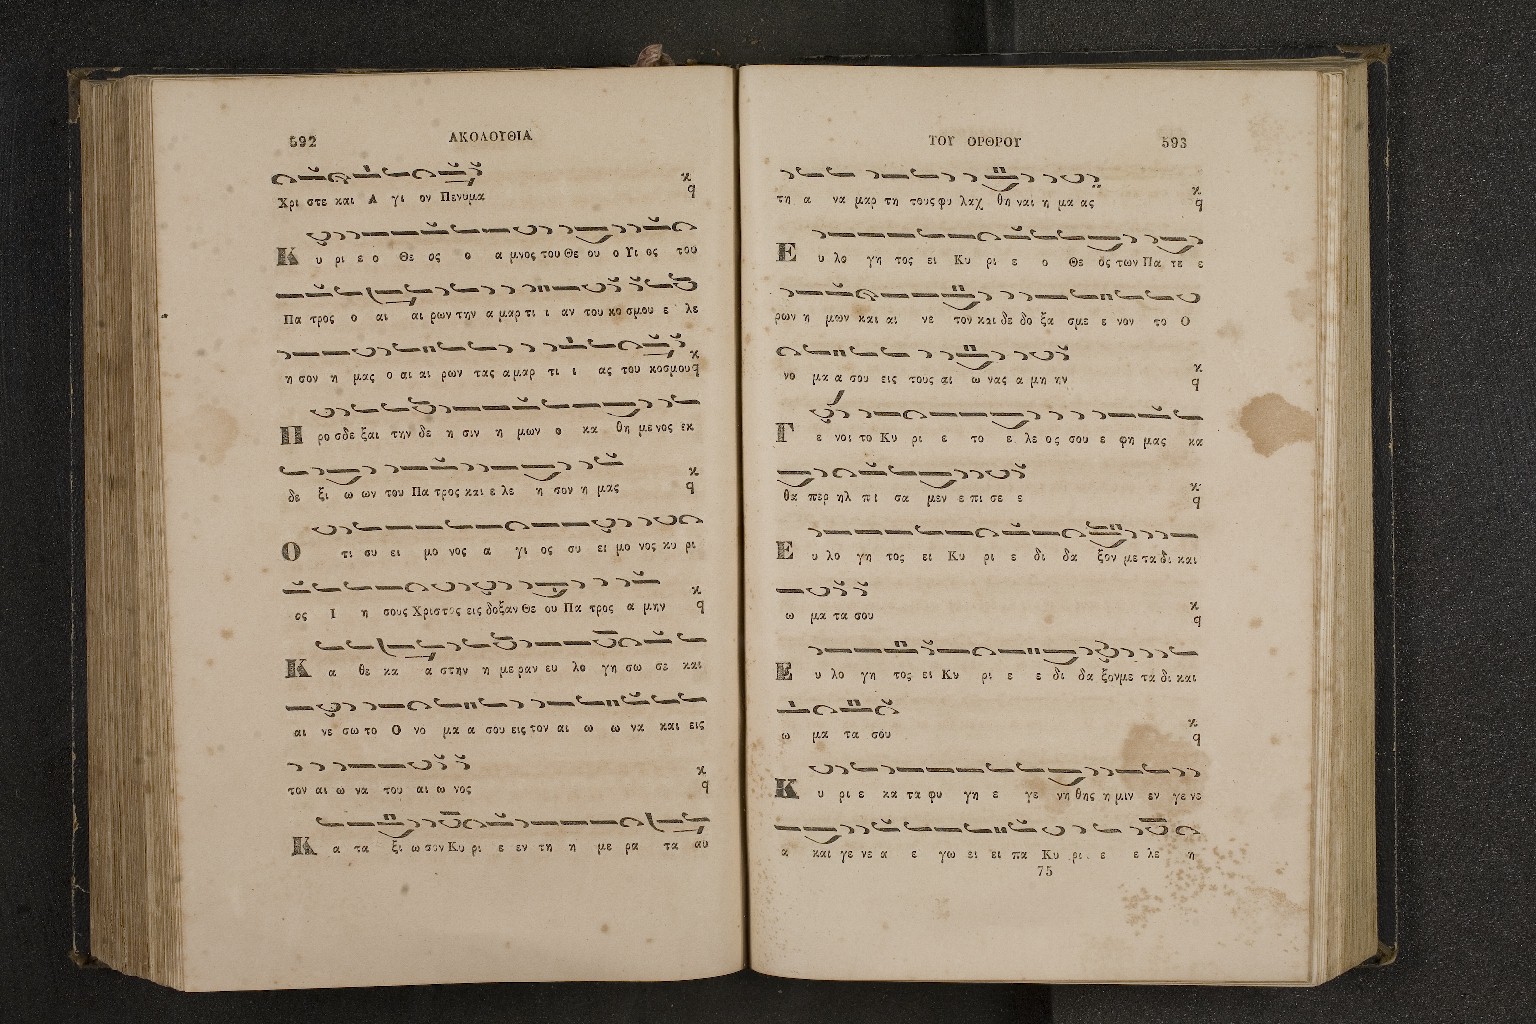 592 ΑΚΟΛΟΥΘΙΑ
Χρι στε και Α γι ον Πενυμα
Κ υ ρι ε ο Θε ος ο α μνος του Θε ου ο Υι ος του
Πα τρος ο αι αι ρων την α μαρ τι ι αν του κο σμου ε λε
η σον η μας ο αι αι ρων τας α μαρ τι ι ας του κοσμου
Π ρο σδε ξαι την δε η σιν η μων ο κα θη με νος εκ
δε ξι ω ων του Πα τρος και ε λε η σον η μας
Ο τι συ ει μο νος α γι ος συ ει μο νος κυ ρι
ος Ι η σους Χριστος εις δοξαν Θε ου Πα τρος α μην
Κ α θε κα α στην η με ραν ευ λο γη σω σε και
αι νε σω το Ο νο μα α σου εις τον αι ω ω να και εις
τον αι ω να του αι ω νος
Κ α τα ξι ω σον Κυ ρι ε εν τη η με ρα τα αυ
ΤΟΥ ΟΡΘΡΟΥ 593
τη α να μαρ τη τους φυ λαχ θη ναι η μα ας
Ε υ λο γη τος ει Κυ ρι ε ο Θε ος των Πα τε ε
ρων η μων και αι νε τον και δε δο ξα σμε ε νον το Ο
νο μα α σου εις τους αι ω νας α μη ην
Γ ε νοι το Κυ ρι ε το ε λε ος σου ε φη μας κα
θα περ ηλ πι σα μεν ε πι σε ε
Ε υ λο γη τος ει Κυ ρι ε δι δα ξον με τα δι και
ω μα τα σου
Ε υ λο γη τος ει Κυ ρι ε ε δι δα ξονμε τα δι και
ω μα τα σου
Κ υ ρι ε κα τα φυ γη ε γε νη θης η μιν εν γε νε
α και γε νε α ε γω ει ει πα Κυ ρι ε ε λε η
75